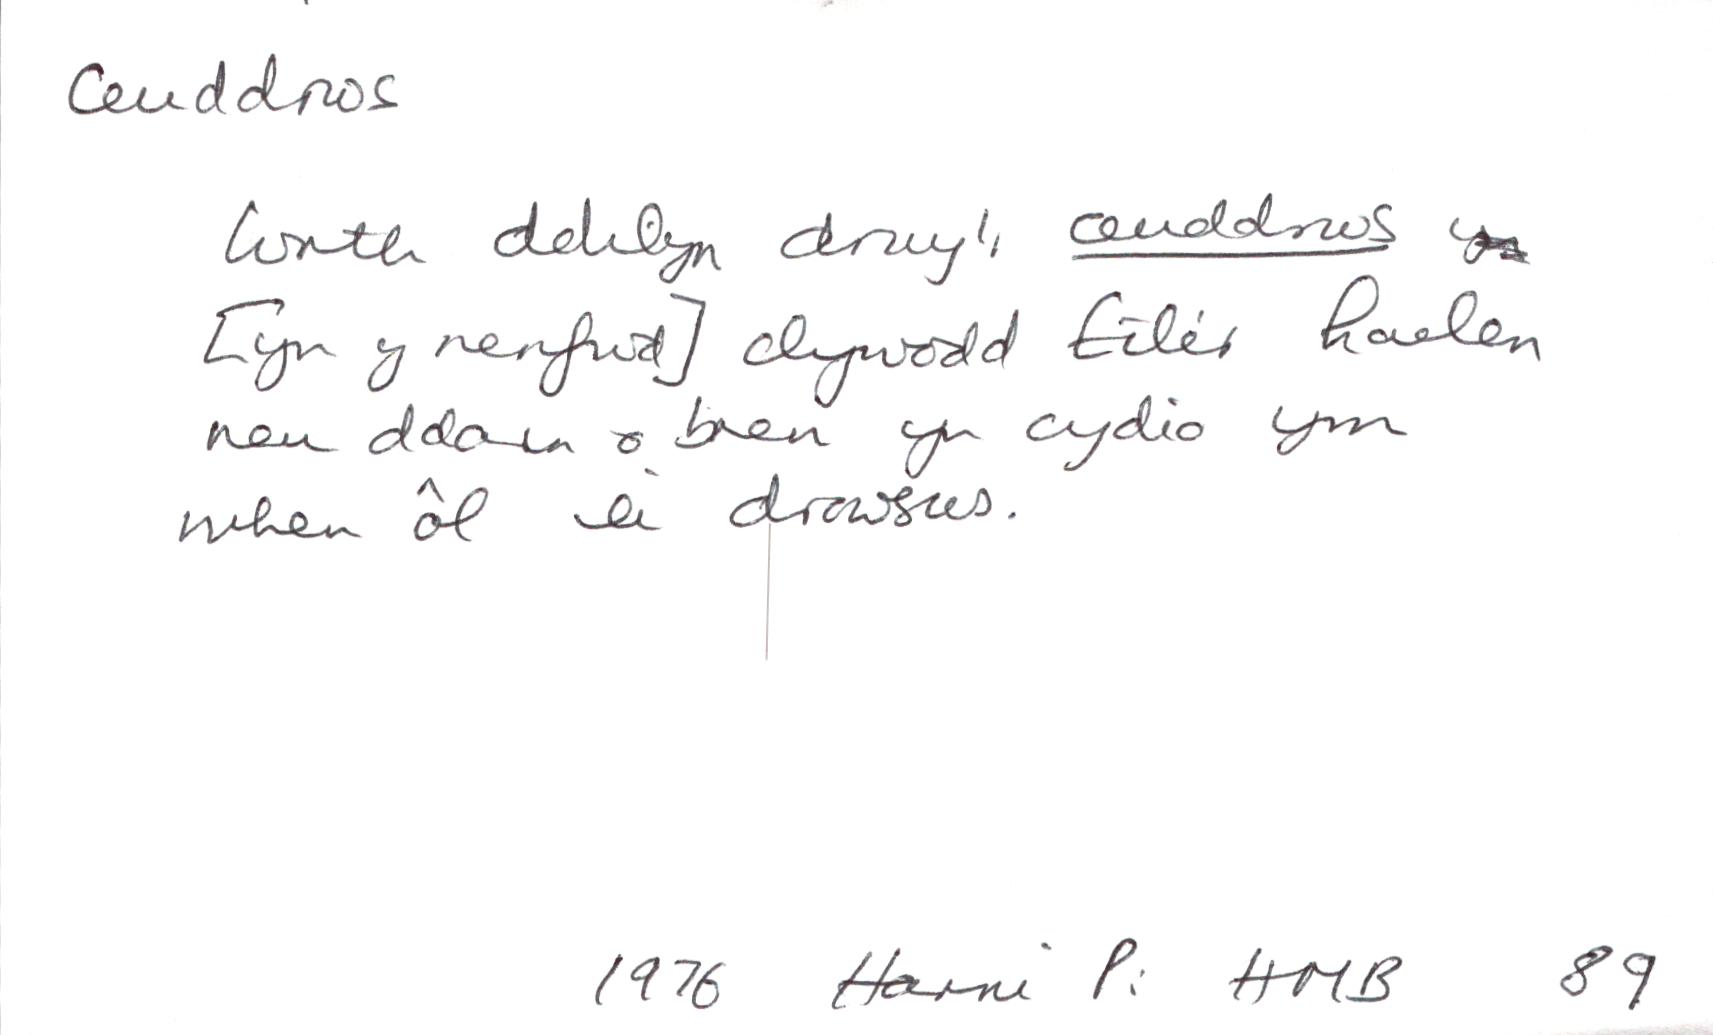 Ceuddrws
Wrth ddilyn drwy'r ceuddrws
[yn y nenfwd] clywodd Eilir hoelen
neu ddarn o bren yn cydio ym
mhen ôl ei drowsus.
1976 Harri P: HMB 89